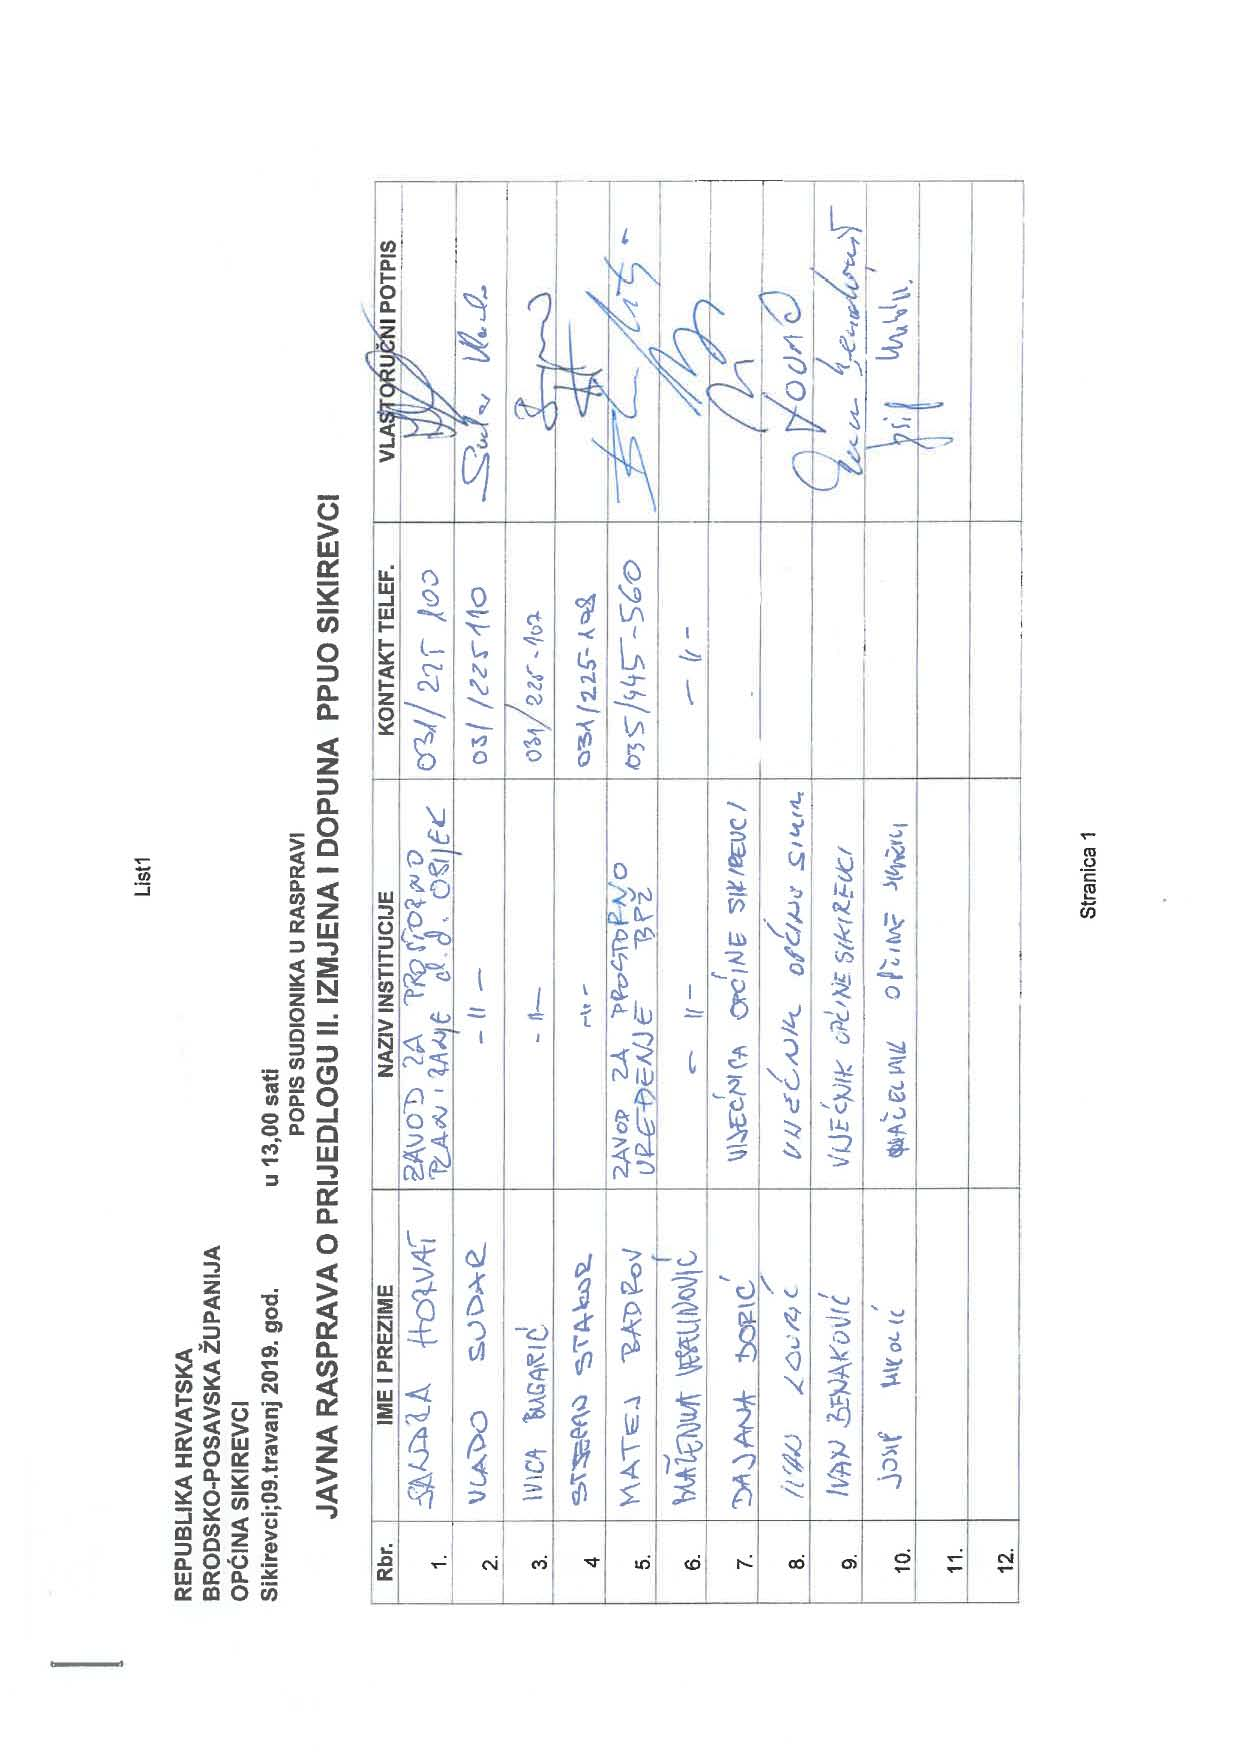 List1
REPUBLIKA HRVATSKA
BRODSKO-POSAVSKA ŽUPANIJA
OPĆINA SIKIREVCI
Sikirevci;09.travanj 2019. god. u 13,00 sati
POPIS SUDIONIKA U RASPRAVI
JAVNA RASPRAVA O PRIJEDLOGU II. IZMJENA I DOPUNA PPUO SIKIREVCI
Rbr. IME I PREZIME NAZIV INSTITUCIJE KONTAKT TELEF. VLASTORUČNI POTPIS
1. SANDRA HORVAT ZAVOD ZA PROSTORNO 031/225 100
PLANIRANJE d.d. OSIJEK
2. VLADO SUDAR -II- 031/225110 Sudar Vlado
3. IVICA BUGARIĆ -II- 031/225-107
4 STJEPAN STAKOR -II- 031/225-108
5. MATEJ BADROV ZAVOD ZA PROSTORNO 035/445-560
UREĐENJE BPŽ
6. BLAŽENKA VESELINOVIĆ -II- -II-
7. DAJANA DORIĆ VIJEĆNICA OPĆINE SIKIREVCI
8. VIJEĆNIK OPĆINE
9. IVAN BENAKOVIĆ VIJEĆNIK OPĆINE SIKIREVCI Ivan Benaković
10. JOSIP NIKOLIĆ NAČELNIK OPĆINE SIKIREVCI Josip Nikolić
11.
12.
Stranica 1